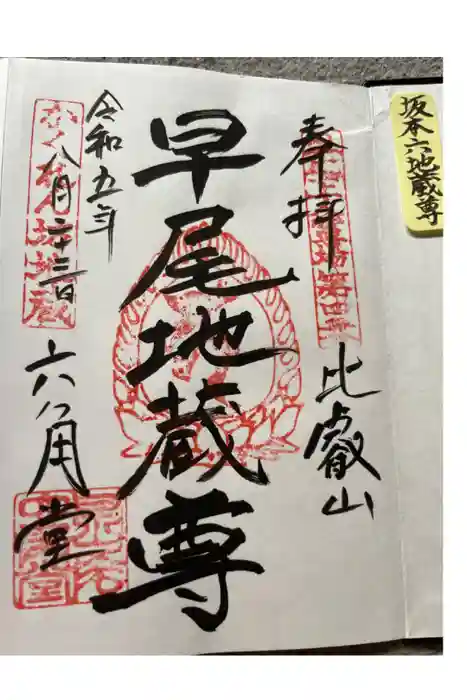 坂本六地蔵尊
奉拝
比叡山
早尾地蔵尊
令和五年
八月二十三日
六角堂